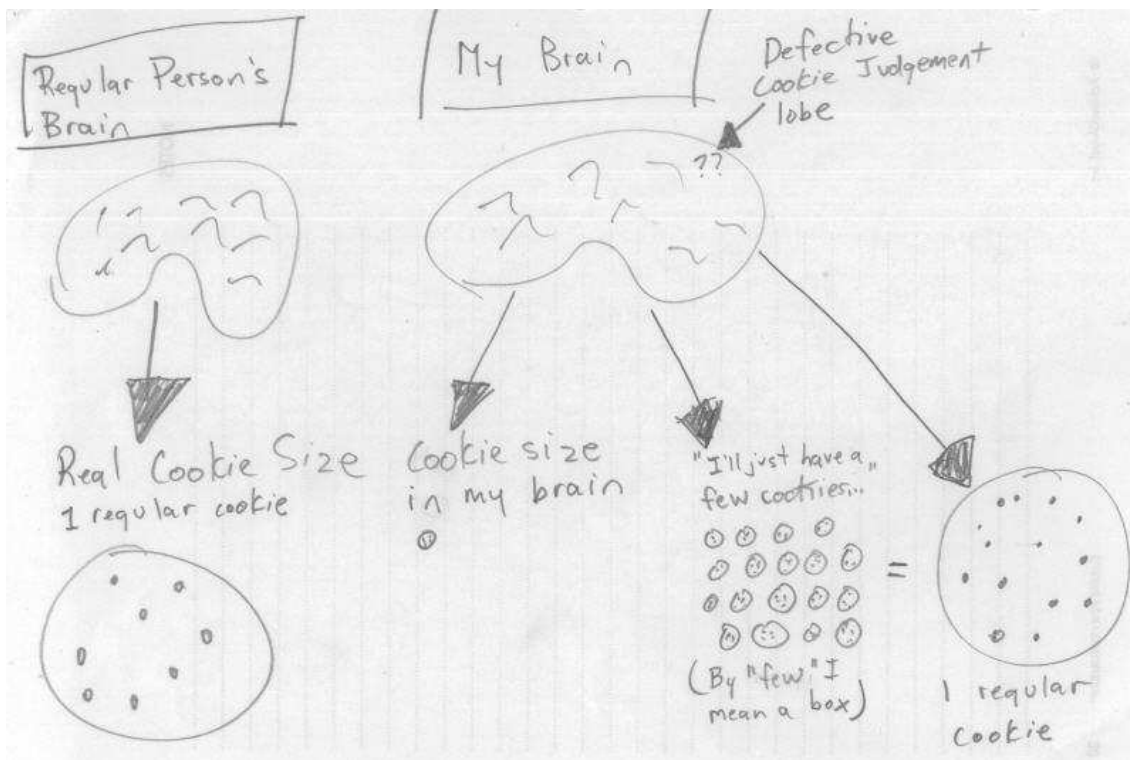 Regular Person's
Brain
My Brain
Defective
Cookie Judgement
lobe
??
Real Cookie Size
1 regular cookie
Cookie size
in my brain
"I'll just have a
few cookies..."
=
(By "few" I
mean a box)
1 regular
cookie